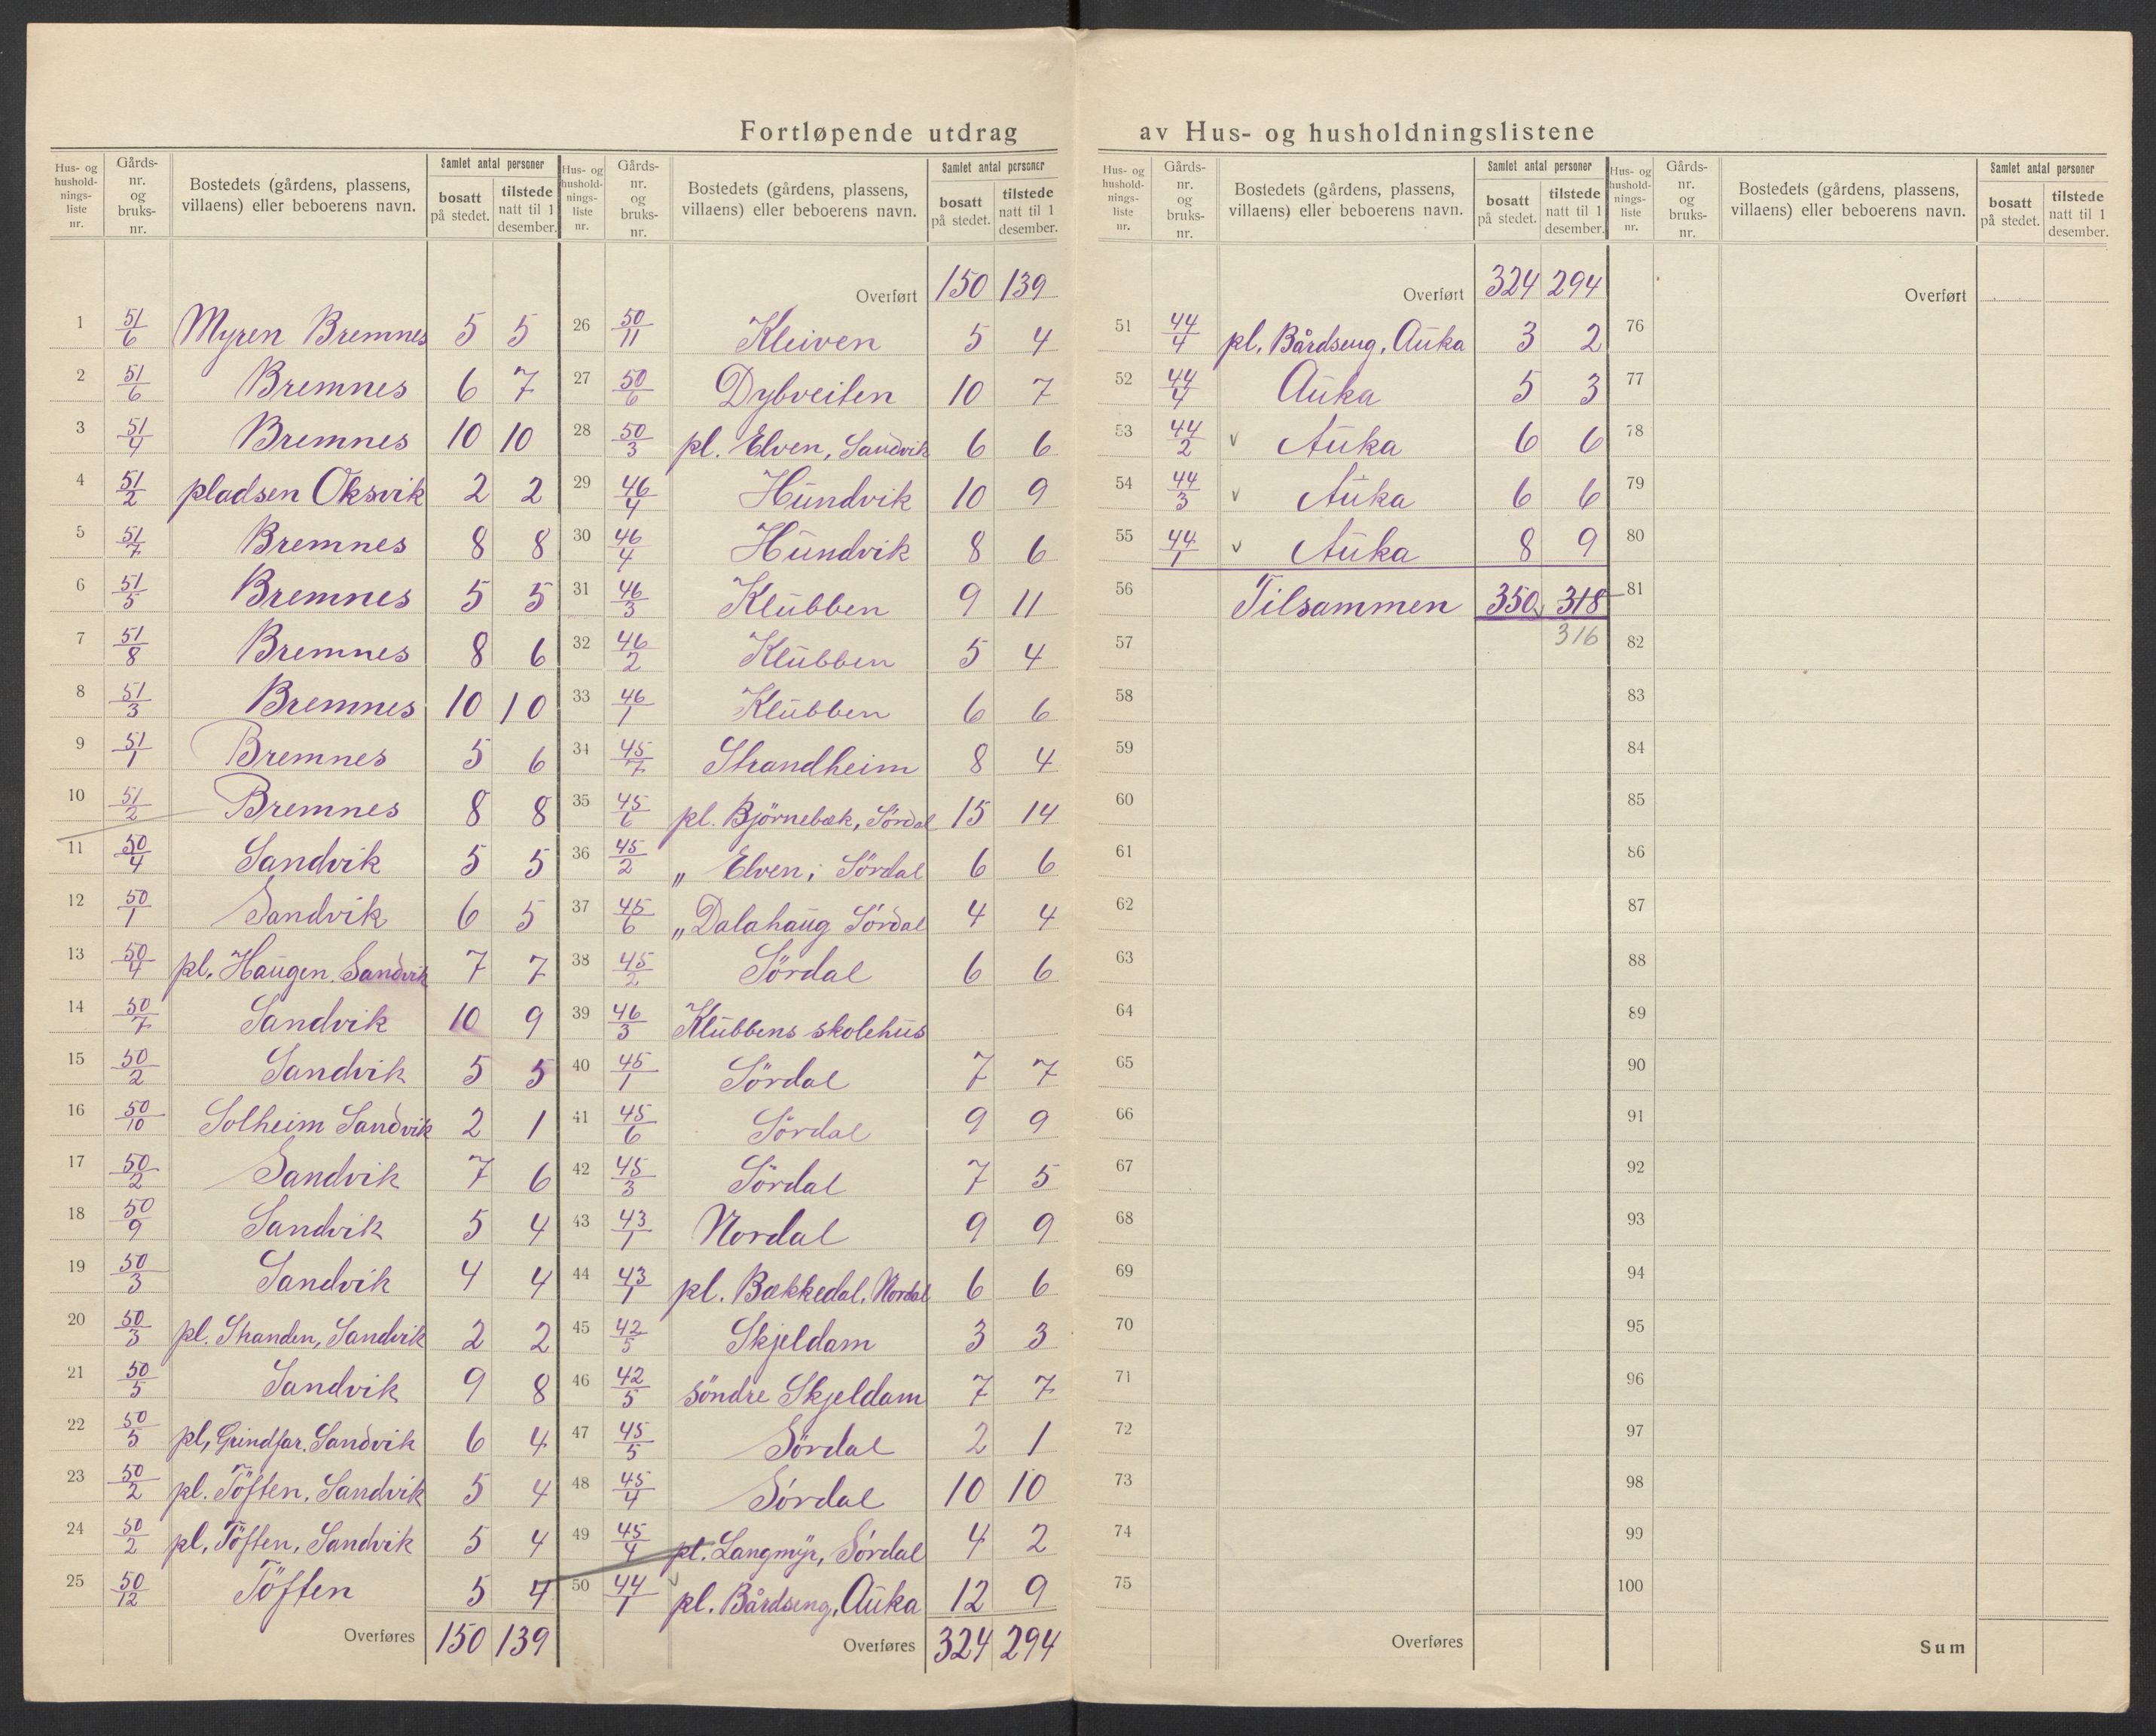 Fortløpende utdrag av Hus- og husholdningslistene
Hus- og husholdningsliste nr. | Gårds-nr. og bruks-nr. | Bostedets (gårdens, plassens, villaens) eller beboerens navn. | Samlet antal personer bosatt på stedet. | tilstede natt til 1 desember.
1 51/6 Myren Bremnes 5 5
2 51/6 Bremnes 6 7
3 51/4 Bremnes 10 10
4 51/2 pladsen Oksvik 2 2
5 51/7 Bremnes 8 8
6 51/5 Bremnes 5 5
7 51/8 Bremnes 8 6
8 51/3 Bremnes 10 10
9 51/1 Bremnes 5 6
10 51/2 Bremnes 8 8
11 50/4 Sandvik 5 5
12 50/1 Sandvik 6 5
13 50/4 pl. Haugen, Sandvik 7 7
14 50/7 Sandvik 10 9
15 50/2 Sandvik 5 5
16 50/10 Solheim Sandvik 2 1
17 50/2 Sandvik 7 6
18 50/9 Sandvik 5 4
19 50/3 Sandvik 4 4
20 50/3 pl. Stranden, Sandvik 2 2
21 50/5 Sandvik 9 8
22 50/5 pl, Grindfar. Sandvik 6 4
23 50/2 pl. Töften, Sandvik 5 4
24 50/2 pl, Töften, Sandvik 5 4
25 50/12 Töften 5 4
Overføres 150 139
Hus- og husholdningsliste nr. | Gårds-nr. og bruks-nr. | Bostedets (gårdens, plassens, villaens) eller beboerens navn. | Samlet antal personer bosatt på stedet. | tilstede natt til 1 desember.
Overført 150 139
26 50/11 Kleiven 5 4
27 50/6 Dybveiten 10 7
28 50/3 pl. Elven, Sandvik 6 6
29 46/4 Hundvik 10 9
30 46/4 Hundvik 8 6
31 46/3 Klubben 9 11
32 46/2 Klubben 5 4
33 46/1 Klubben 6 6
34 45/7 Strandheim 8 4
35 45/6 pl. Björnebæk, Sördal 15 14
36 45/2 „ Elven, Sördal 6 6
37 45/6 „ Dalahaug Sördal 4 4
38 45/2 Sördal 6 6
39 46/3 Klubbens skolehus
40 45/1 Sördal 7 7
41 45/6 Sördal 9 9
42 45/3 Sördal 7 5
43 43/1 Nordal 9 9
44 43/1 pl. Bækkedal, Nordal 6 6
45 42/5 Skjeldam 3 3
46 42/5 söndre Skjeldam 7 7
47 45/5 Sördal 2 1
48 45/4 Sördal 10 10
49 45/4 pl. Langmyr, Sördal 4 2
50 44/1 pl. Bårdseng, Auka 12 9
Overføres 324 294
Hus- og husholdningsliste nr. | Gårds-nr. og bruks-nr. | Bostedets (gårdens, plassens, villaens) eller beboerens navn. | Samlet antal personer bosatt på stedet. | tilstede natt til 1 desember.
Overført 324 294
51 44/4 pl. Bårdseng, Auka 3 2
52 44/4 Auka 5 3
53 44/2 v Auka 6 6
54 44/3 v Auka 6 6
55 44/1 v Auka 8 9
56 Tilsammen 350 318
57 316
58
59
60
61
62
63
64
65
66
67
68
69
70
71
72
73
74
75
Overføres
Hus- og husholdningsliste nr. | Gårds-nr. og bruks-nr. | Bostedets (gårdens, plassens, villaens) eller beboerens navn. | Samlet antal personer bosatt på stedet. | tilstede natt til 1 desember.
Overført
76
77
78
79
80
81
82
83
84
85
86
87
88
89
90
91
92
93
94
95
96
97
98
99
100
Sum